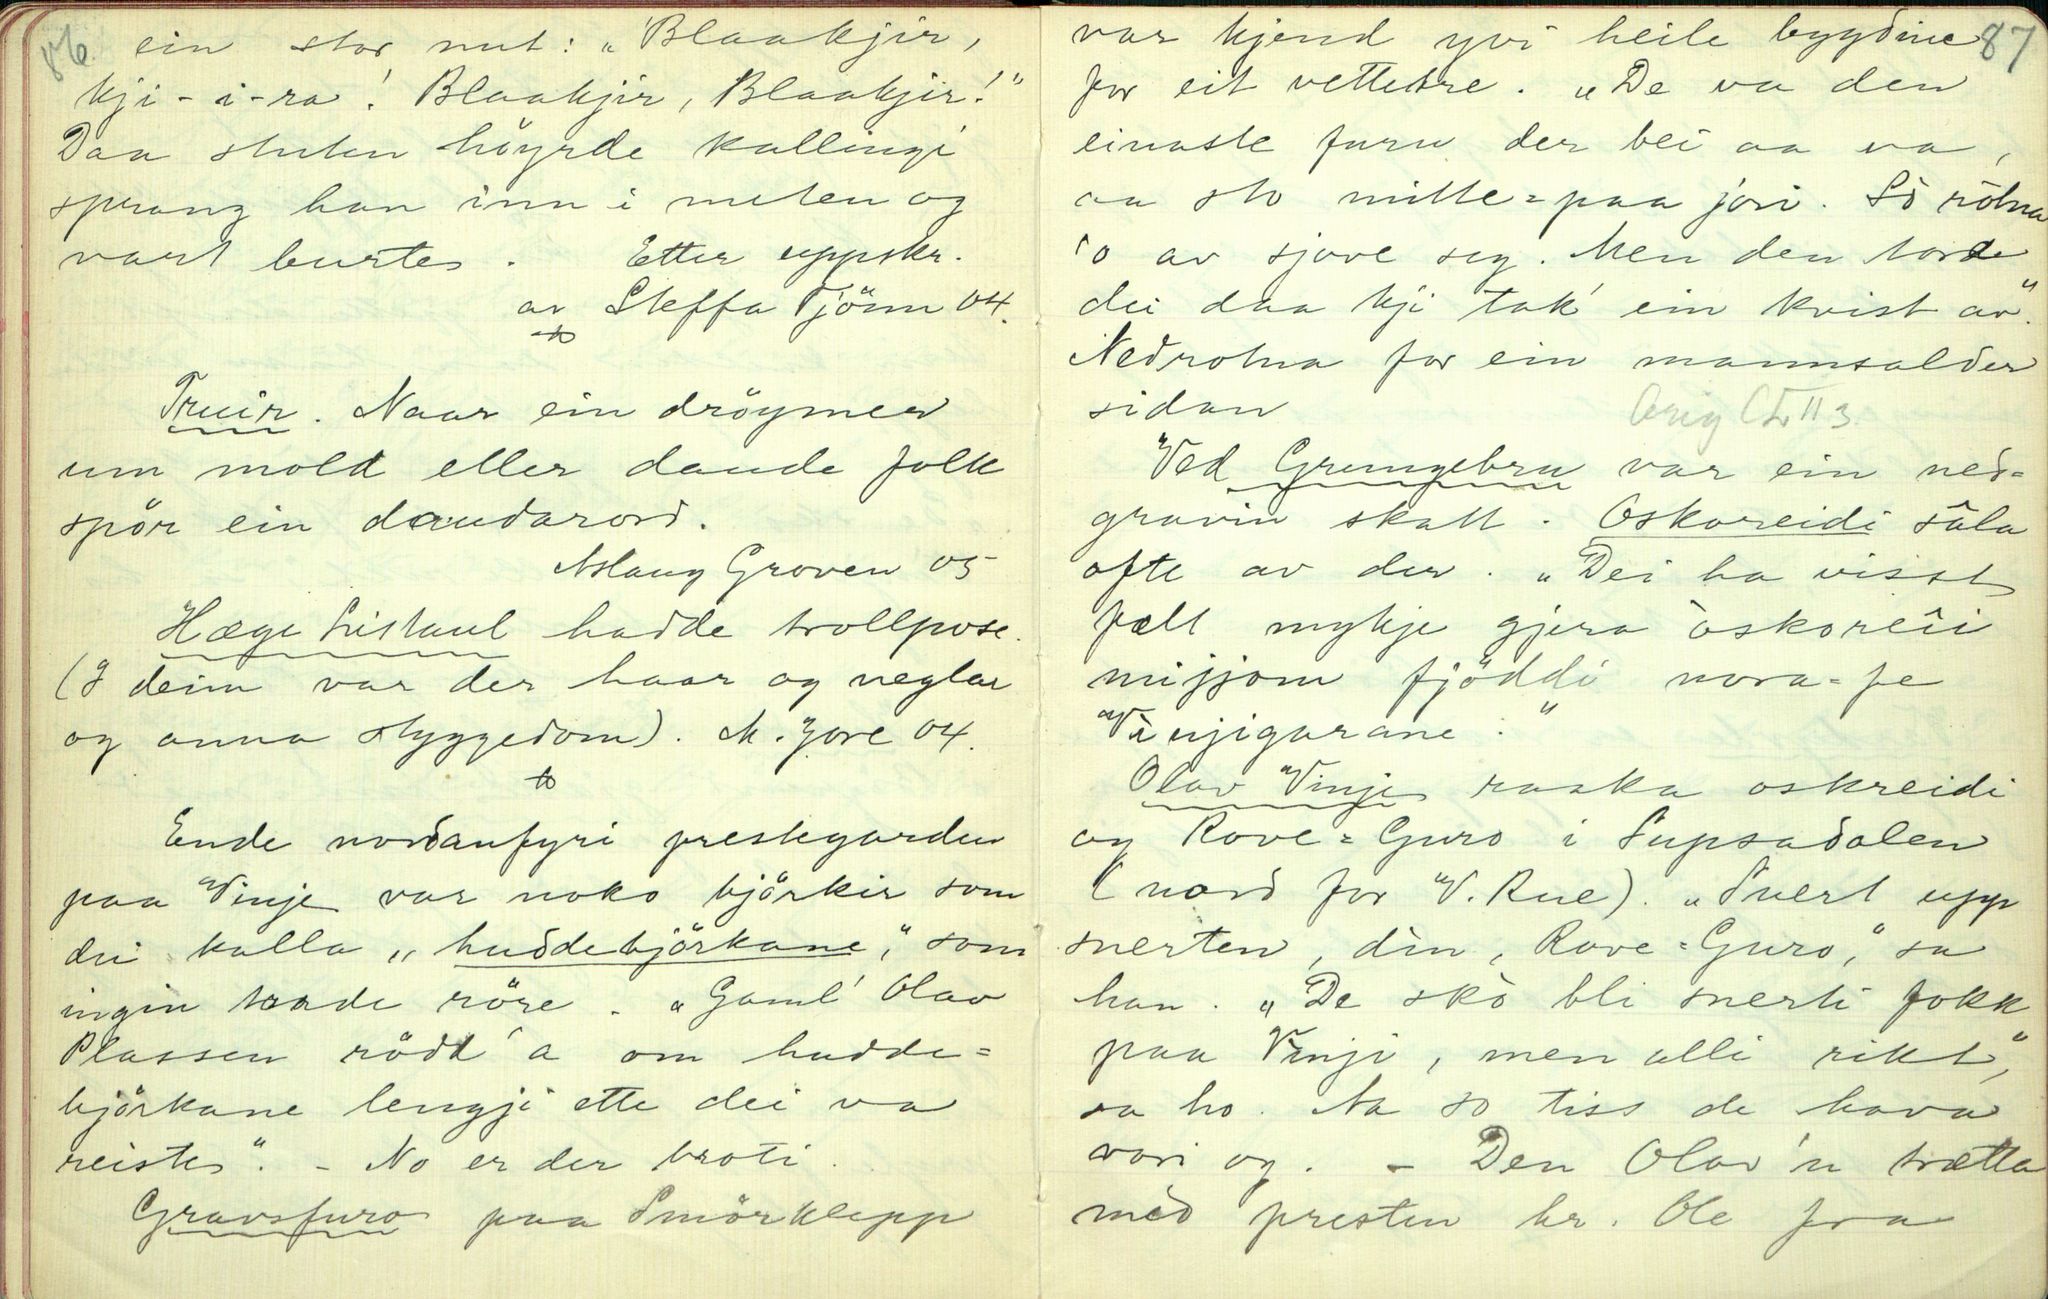 86
ein stor nut: „Blaakjir,
kji-i-ra! Blaakjir, Blaakjir!"
Daa stuten höyrde kallingi
sprang han inn i nuten og
vart burte. Etter uppskr.
av Steffa Tjönn 04.
Truir. Naar ein dröymer
um mold eller daude folk
spör ein daudarord.
Aslaug Groven 05
Hæge Listaul hadde trollpose.
(I deim var der haar og neglar
og anna styggedom). M. Jore 04.
Ende nordanfyri prestegarden
paa Vinje var noko björkir som
dei kalla „huddebjörkane", som
ingin torde röre. „Gaml' Olav
Plassen rödd' a om hudde=
björkane lengji ette dei va
reiste". – No er der broti.
Gravsfuro paa Smörklepp
87
var kjend yvi heile bygdine
for eit vettetre. „De va den
einaste furu der bei aa va,
aa sto mitte=paa jori. So rotna
o av sjove seg. Men den torde
dei daa kji tak' ein kvist av".
Nedrotna for ein mannsalder
sidan
Orig II 3
Ved Grungebru var ein ned=
gravin skatt. Oskoreidi sala
ofte av der. „Dei ha visst
fælt mykje gjera òskoreii
mijjom fjöddi nora=fe
Vinjigarane."
Olav Vinje raska oskreidi
og Rove=Guro i Lupsadalen
(nord for V. Rue). „Snert upp
snerten, din, Rove=Guro," sa
han. „De skò bli snerti fokk
paa Vinji, men alli rikt",
sa ho. Aa so tiss de hava
vori og. – Den Olav'n trætta
med presten hr. Ole fra